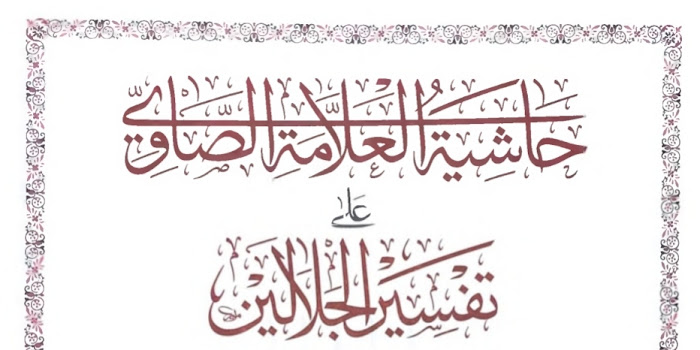 حَاشِيَةُ العَلَّامَةِ الصَّاوِيّ
عَلى
تَفْسِيرِ الجَلَالَيْن